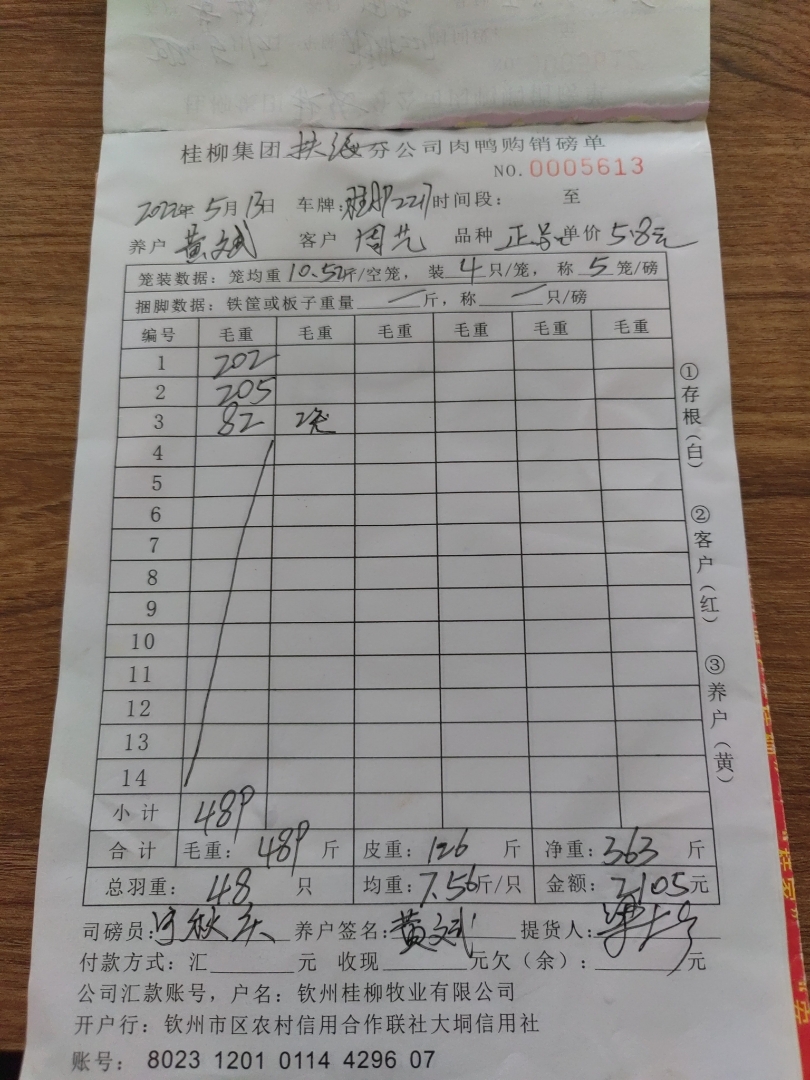 桂柳集团扶海分公司肉鸭购销磅单
NO.0005613
2022年5月13日 车牌: 时间段: 至
养户 黄文斌 客户 周艺 品种 正号 单价 5.8元
笼装数据: 笼均重10.5斤/空笼, 装4只/笼, 称5笼/磅
捆脚数据: 铁筐或板子重量 — 斤, 称 — 只/磅
编号 毛重 毛重 毛重 毛重 毛重 毛重
1 202
2 205
3 82 2笼
4
5
6
7
8
9
10
11
12
13
14
小计 489
合计 毛重: 489 斤 皮重: 126 斤 净重: 363 斤
总羽重: 48 只 均重: 7.56斤/只 金额: 2105元
司磅员: 养户签名: 黄文斌 提货人:
付款方式: 汇 元 收现 元欠(余): 元
公司汇款账号, 户名: 钦州桂柳牧业有限公司
开户行: 钦州市区农村信用合作联社大垌信用社
账号: 8023 1201 0114 4296 07
①存根(白)
②客户(红)
③养户(黄)